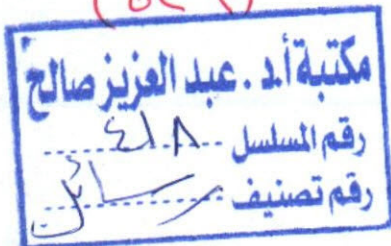 مكتبة أ.د. عبد العزيز صالح
رقم المسلسل ٤١٨
رقم تصنيف رسائل